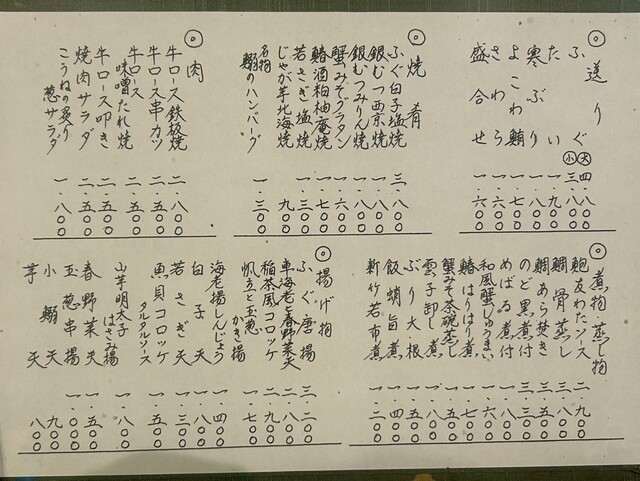 ◎送り
ふぐ ㊅四・八〇〇
㊉三・八〇〇
たい 一・九〇〇
寒ぶり 一・八〇〇
よこわ鮪 一・七〇〇
さわら 一・六〇〇
盛合せ
◎焼肴
ふぐ白子塩焼 三・八〇〇
銀むつ西京焼 一・八〇〇
銀むつみりん焼 一・八〇〇
蟹みそグラタン 一・六〇〇
鰆酒粕柚庵焼 一・七〇〇
若さぎ塩焼 一・三〇〇
じゃが芋北海焼 九〇〇
名物 鰯のハンバーグ 一・三〇〇
◎肉
牛ロース鉄板焼 二・八〇〇
牛ロース串カツ 二・五〇〇
牛ロース味噌たれ焼 二・五〇〇
牛ロース叩き 二・五〇〇
焼肉サラダ 二・五〇〇
こうねの炙り葱サラダ 一・八〇〇
◎煮物・蒸し物
鮑友わたソース 二・九〇〇
鯛骨蒸し
鯛あら焚き
のど黒煮付
めばる煮付
和風蟹しゅうまい
鰆はりはり煮
蟹みそ茶碗蒸し
雲子卸し煮
ぶり大根
飯蛸旨煮 一・四〇〇
新竹若布煮 一・二〇〇
◎揚げ物
ふぐ唐揚 三・二〇〇
車海老と春野菜天
稲茶風コロッケ
帆立と玉葱かき揚 一・七〇〇
海老揚しんじょう 一・四〇〇
白子天 一・八〇〇
若さぎ天 一・三〇〇
魚貝コロッケ タルタルソース 一・五〇〇
山芋明太子はさみ揚 一・八〇〇
春野菜天 一・五〇〇
玉葱串揚
小鰯天 九〇〇
芋天 八〇〇